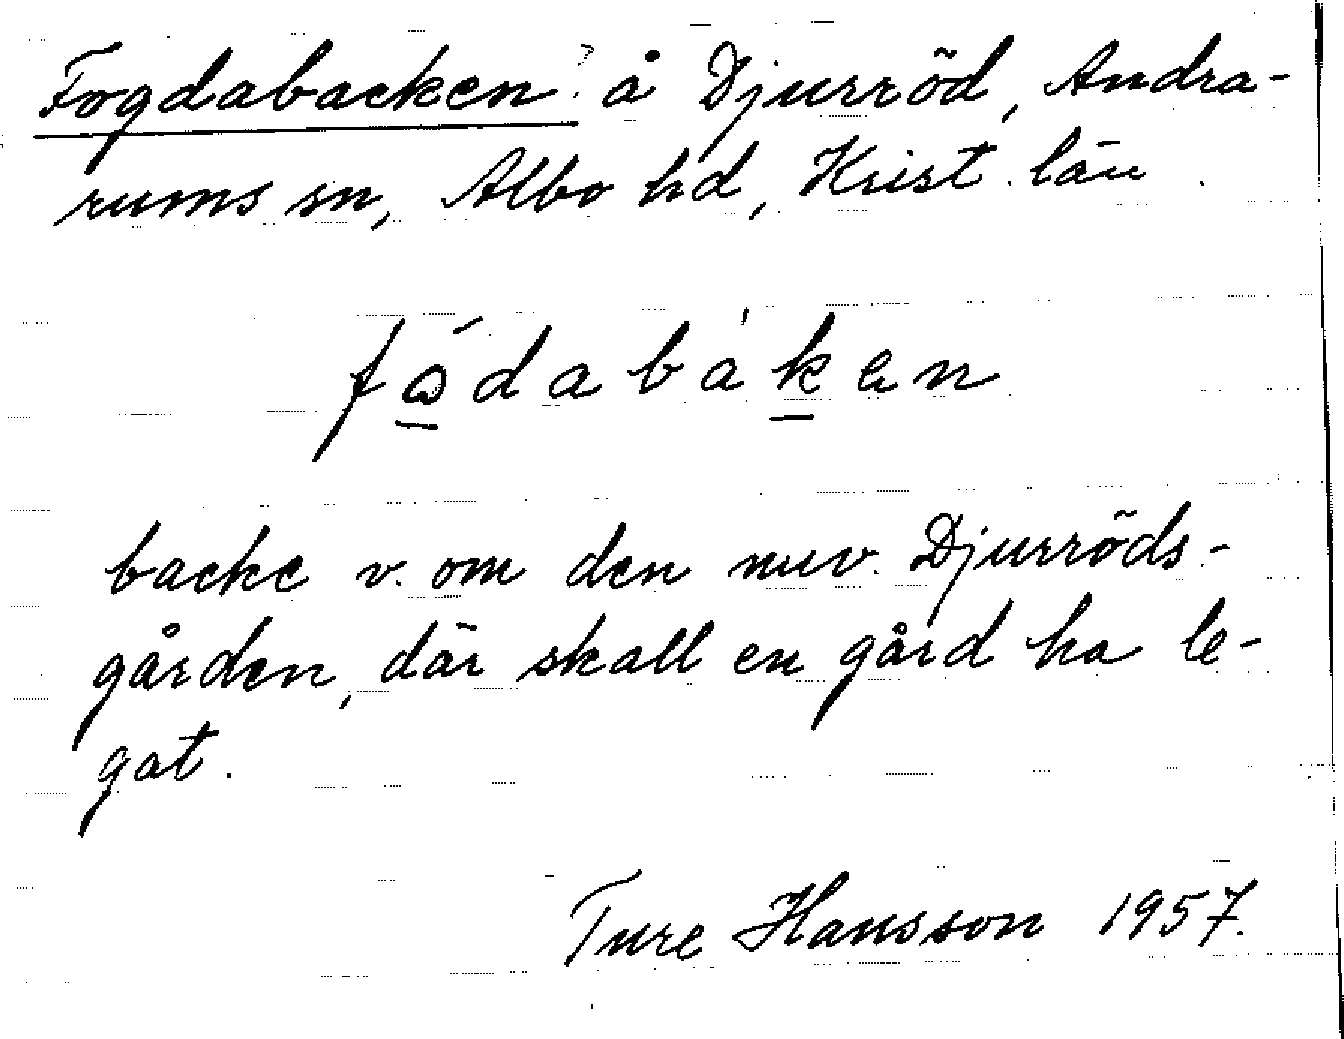 Fogdabacken? å Djurröd, Andra-
rums sn, Albo hd, Krist. län
backe v. om den nuv. Djurröds-
gården, där skall en gård ha le-
gat.
Ture Hansson 1957.